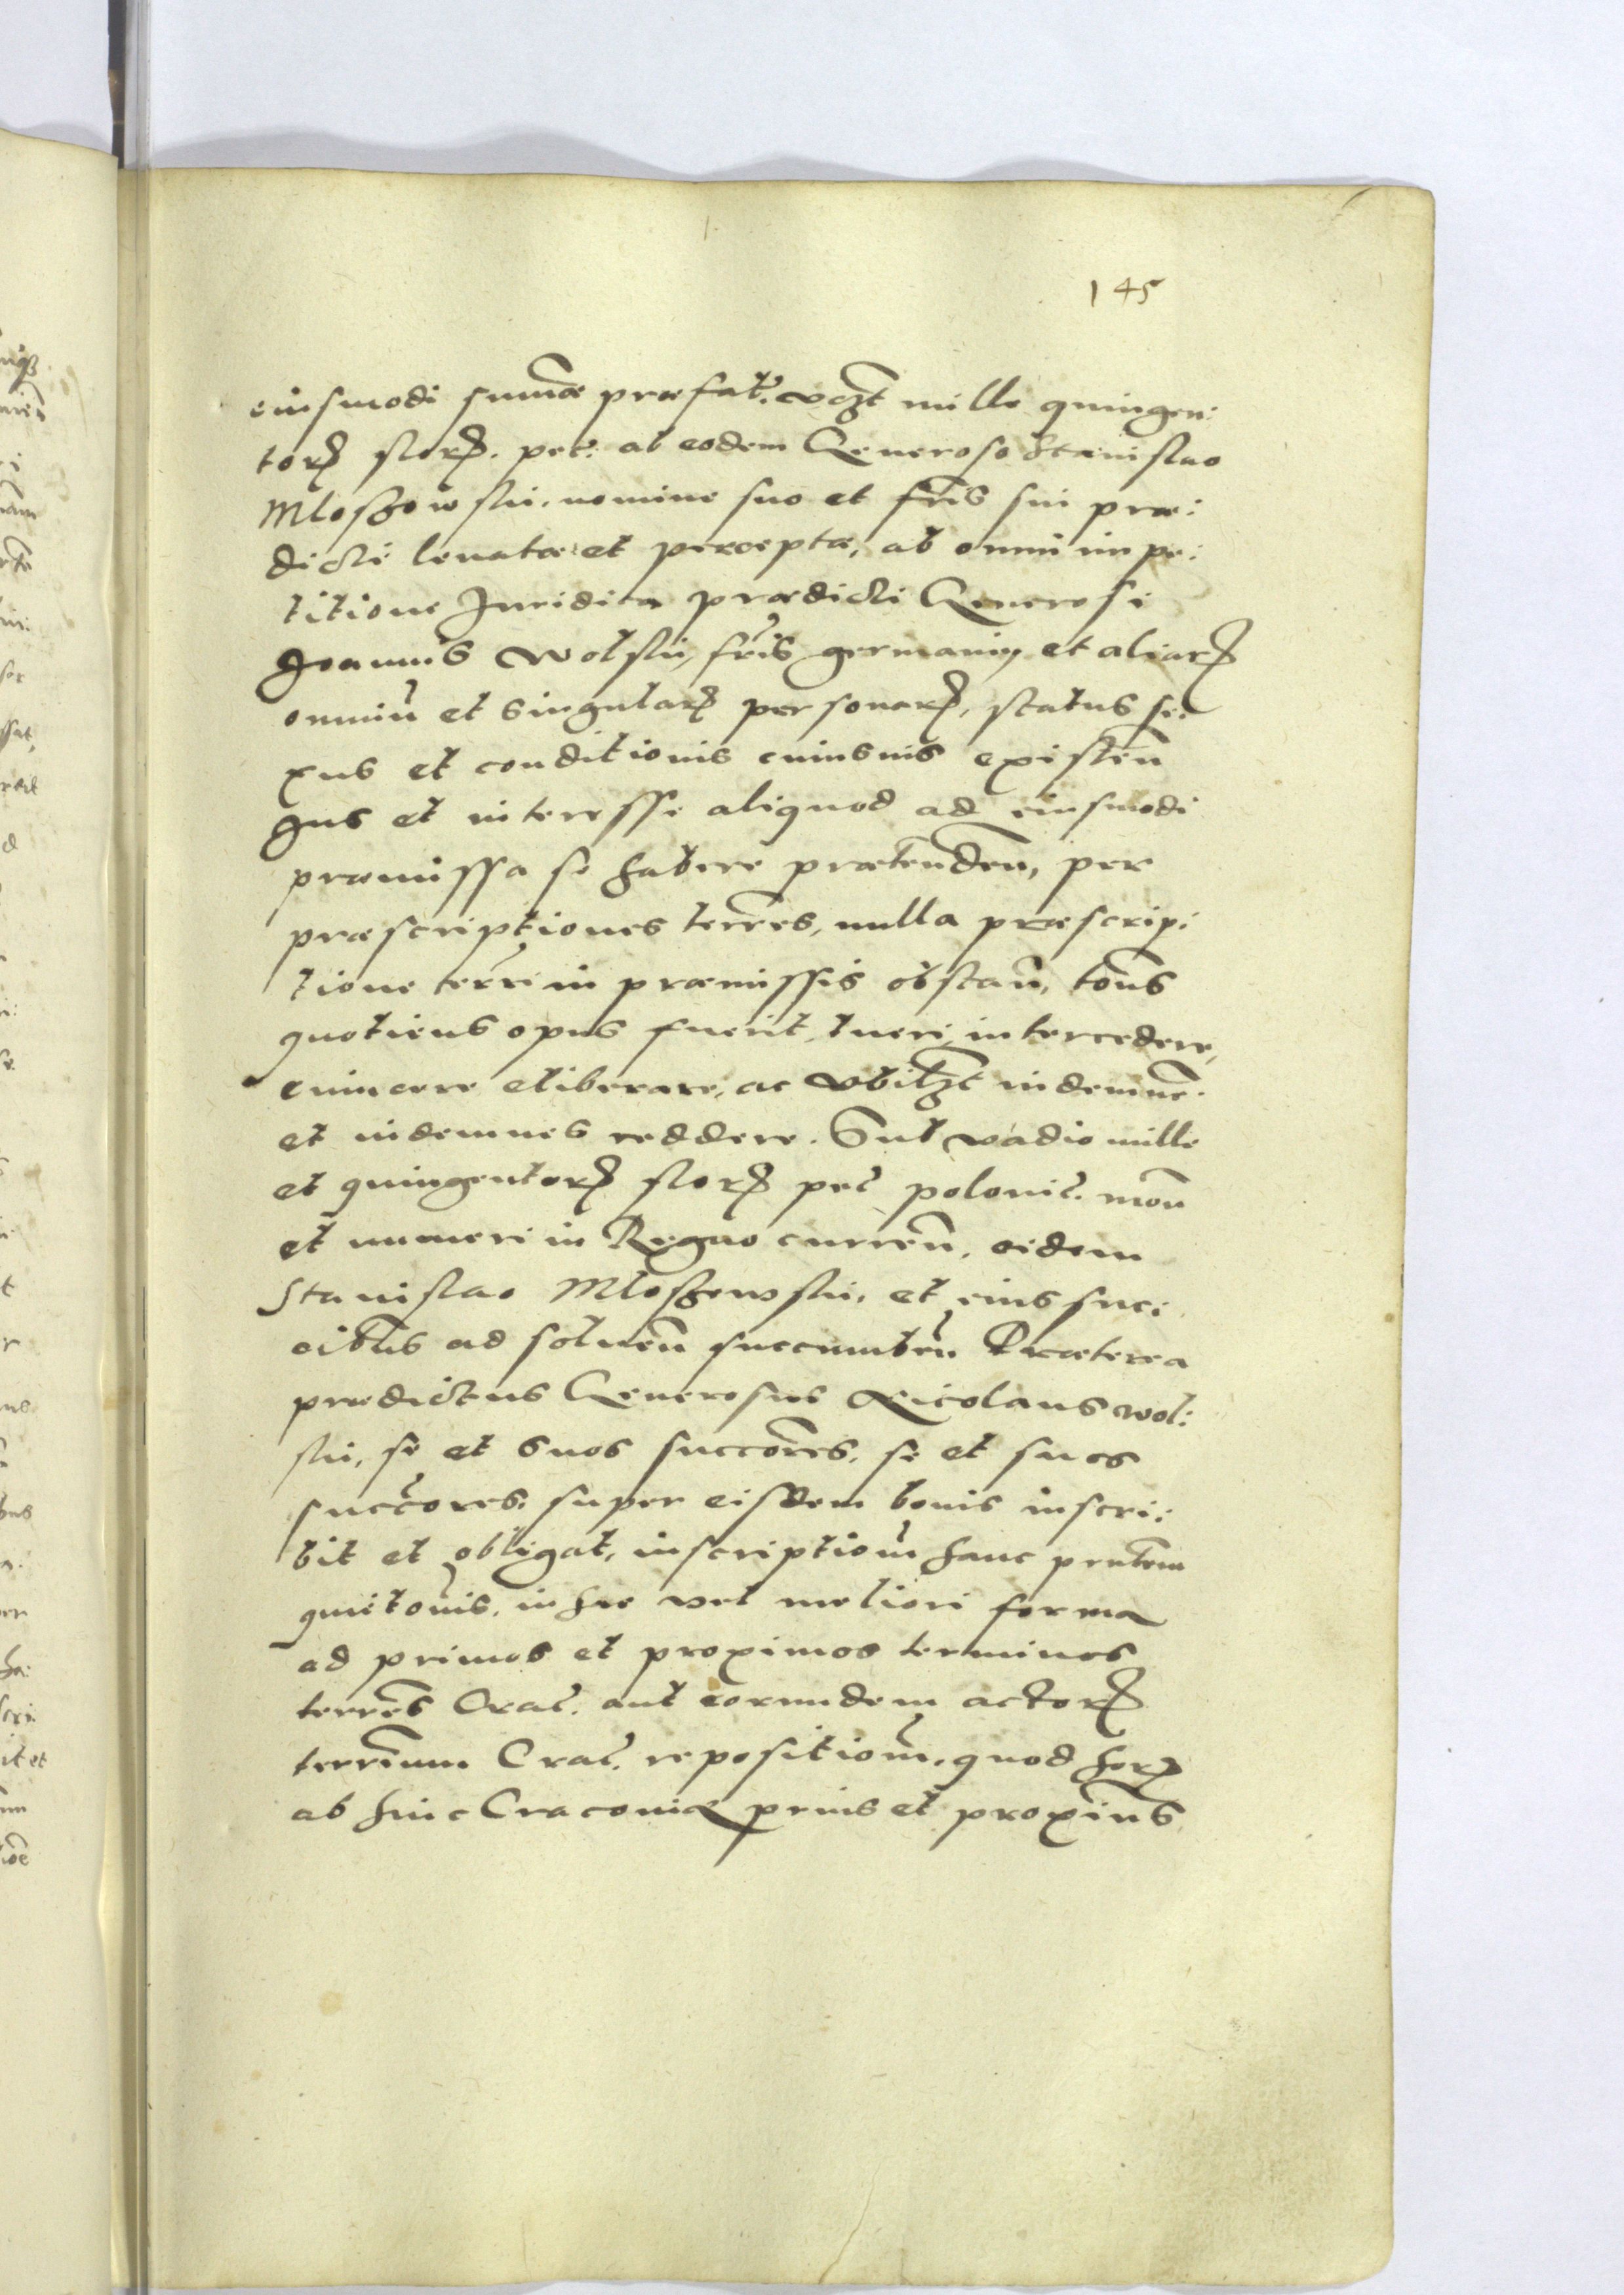 145
eiusmodi summae praefat. vdzt mille quingen:
torꝝ florꝝ. pec: ab eodem Generoso Stanislao
Mloszowskii. nomine suo et fr̃is sui prae:
dicti leuatae et perceptae, ab omni impe:
titione Juridica praedicti Generosi
Joannis Wolskii, fr̃is germani, et aliarꝝ
omniũ et singularꝝ personarꝝ, status se:
xus et conditionis cuiusuis existeñ
Jus et interesse aliquod ad eiusmodi
praemissa se habere praetendeñ, per
praescriptiones terr̃es, nulla praescrip:
tione terr̃i in praemissis obstañ, tot̃is
quotiens opus fuerit, tueri, intercedere,
euincere eliberare, ac vbilzt indemnẽ.
et indemnes reddere. Sub vadio mille
et quingentorꝝ florꝝ pec̃ polonic̃. moñ
et numeri in Regno curreñ, eidem
Stanislao Mloszowskii. et eius suc:
cib̃us ad solueñ succumbeñ Praeterea
praedictus Generosus Nicolaus Wol:
skii, se et suos succ̃ores. se et suos
succ̃ores. super eisdem bonis inscri:
bit et obligat, inscriptiom̃ hanc pñtem
quietõnis. in hac vel meliori forma
ad primos et proximos terminos
terr̃es Crac̃. aut eorundem actorꝝ
terr̃ium Crac̃. repositiom̃. quod horꝝ
ab hinc Cracouiae prius et proxim̃s